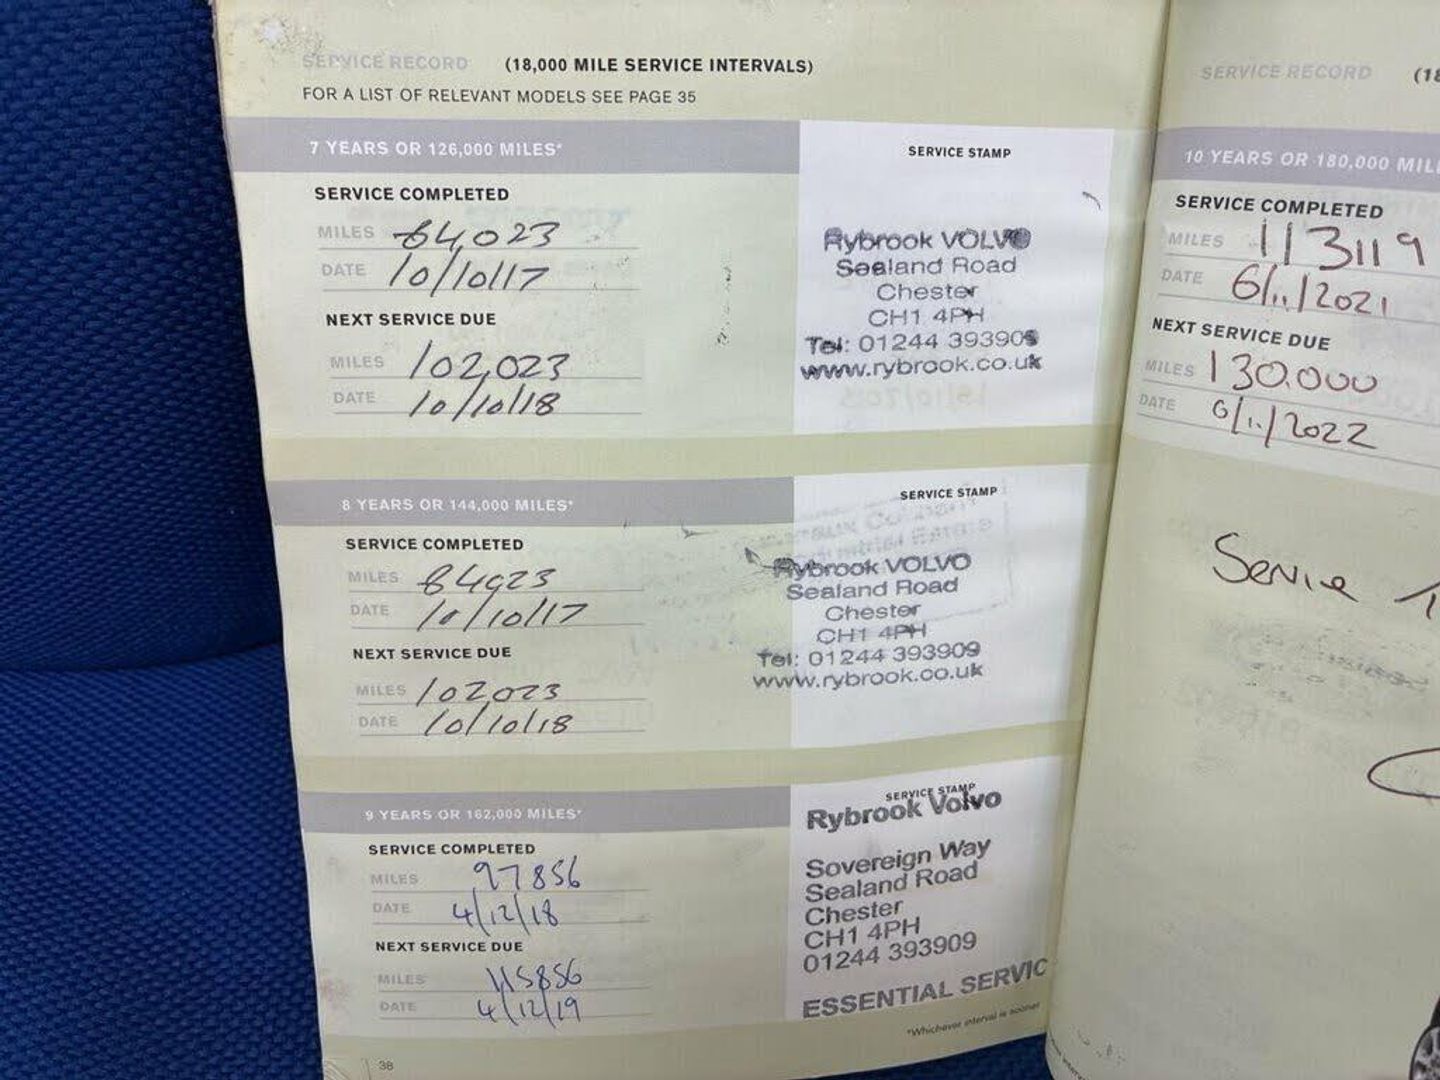 SERVICE RECORD (18,000 MILE SERVICE INTERVALS)
FOR A LIST OF RELEVANT MODELS SEE PAGE 35
7 YEARS OR 126,000 MILES*
SERVICE STAMP
SERVICE COMPLETED
MILES 84,023
DATE 10/10/17
NEXT SERVICE DUE
MILES 102,023
DATE 10/10/18
Rybrook VOLVO
Sealand Road
Chester
CH1 4PH
Tel: 01244 393909
www.rybrook.co.uk
8 YEARS OR 144,000 MILES*
SERVICE STAMP
SERVICE COMPLETED
MILES 84023
DATE 10/10/17
NEXT SERVICE DUE
MILES 102023
DATE 10/10/18
Rybrook VOLVO
Sealand Road
Chester
CH1 4PH
Tel: 01244 393909
www.rybrook.co.uk
9 YEARS OR 162,000 MILES*
SERVICE STAMP
SERVICE COMPLETED
MILES 97856
DATE 4/12/18
NEXT SERVICE DUE
MILES 115856
DATE 4/12/19
Rybrook Volvo
Sovereign Way
Sealand Road
Chester
CH1 4PH
01244 393909
ESSENTIAL SERVIC
*Whichever interval is sooner
38
SERVICE RECORD (18
10 YEARS OR 180,000 MIL
SERVICE COMPLETED
MILES 113119
DATE 6/11/2021
NEXT SERVICE DUE
MILES 130.000
DATE 6/11/2022
Service